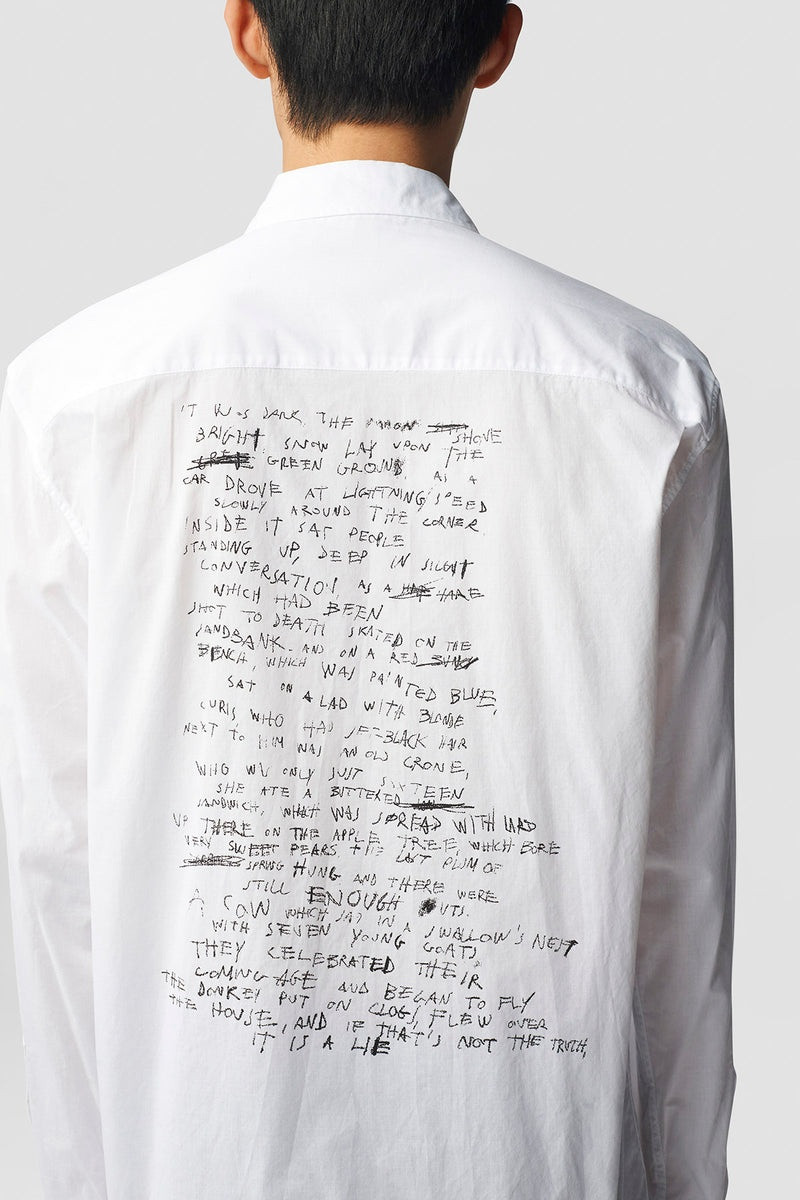 IT WAS DARK, THE MOON SHONE
BRIGHT SNOW LAY UPON THE
GREEN GROUND, AS A
CAR DROVE AT LIGHTNING SPEED
SLOWLY AROUND THE CORNER
INSIDE IT SAT PEOPLE
STANDING UP, DEEP IN SILENT
CONVERSATION, AS A HARE
WHICH HAD BEEN
SHOT TO DEATH SKATED ON THE
SANDBANK. AND ON A RED
BENCH, WHICH WAS PAINTED BLUE,
SAT ON A LAD WITH BLONDE
CURLS, WHO HAD JET-BLACK HAIR
NEXT TO HIM WAS AN OLD CRONE,
WHO WAS ONLY JUST SIXTEEN
SHE ATE A BUTTERED
SANDWICH, WHAT WAS SPREAD WITH LARD
UP THERE ON THE APPLE TREE, WHICH BORE
VERY SWEET PEARS, THE LAST PLUM OF
SPRING HUNG AND THERE WERE
STILL ENOUGH NUTS.
A COW WHICH SAT IN A SWALLOW'S NEST
WITH SEVEN YOUNG GOATS
THEY CELEBRATED THEIR
COMING AGE AND BEGAN TO FLY
THE DONKEY PUT ON CLOGS, FLEW OVER
THE HOUSE, AND IF THAT'S NOT THE TRUTH,
IT IS A LIE